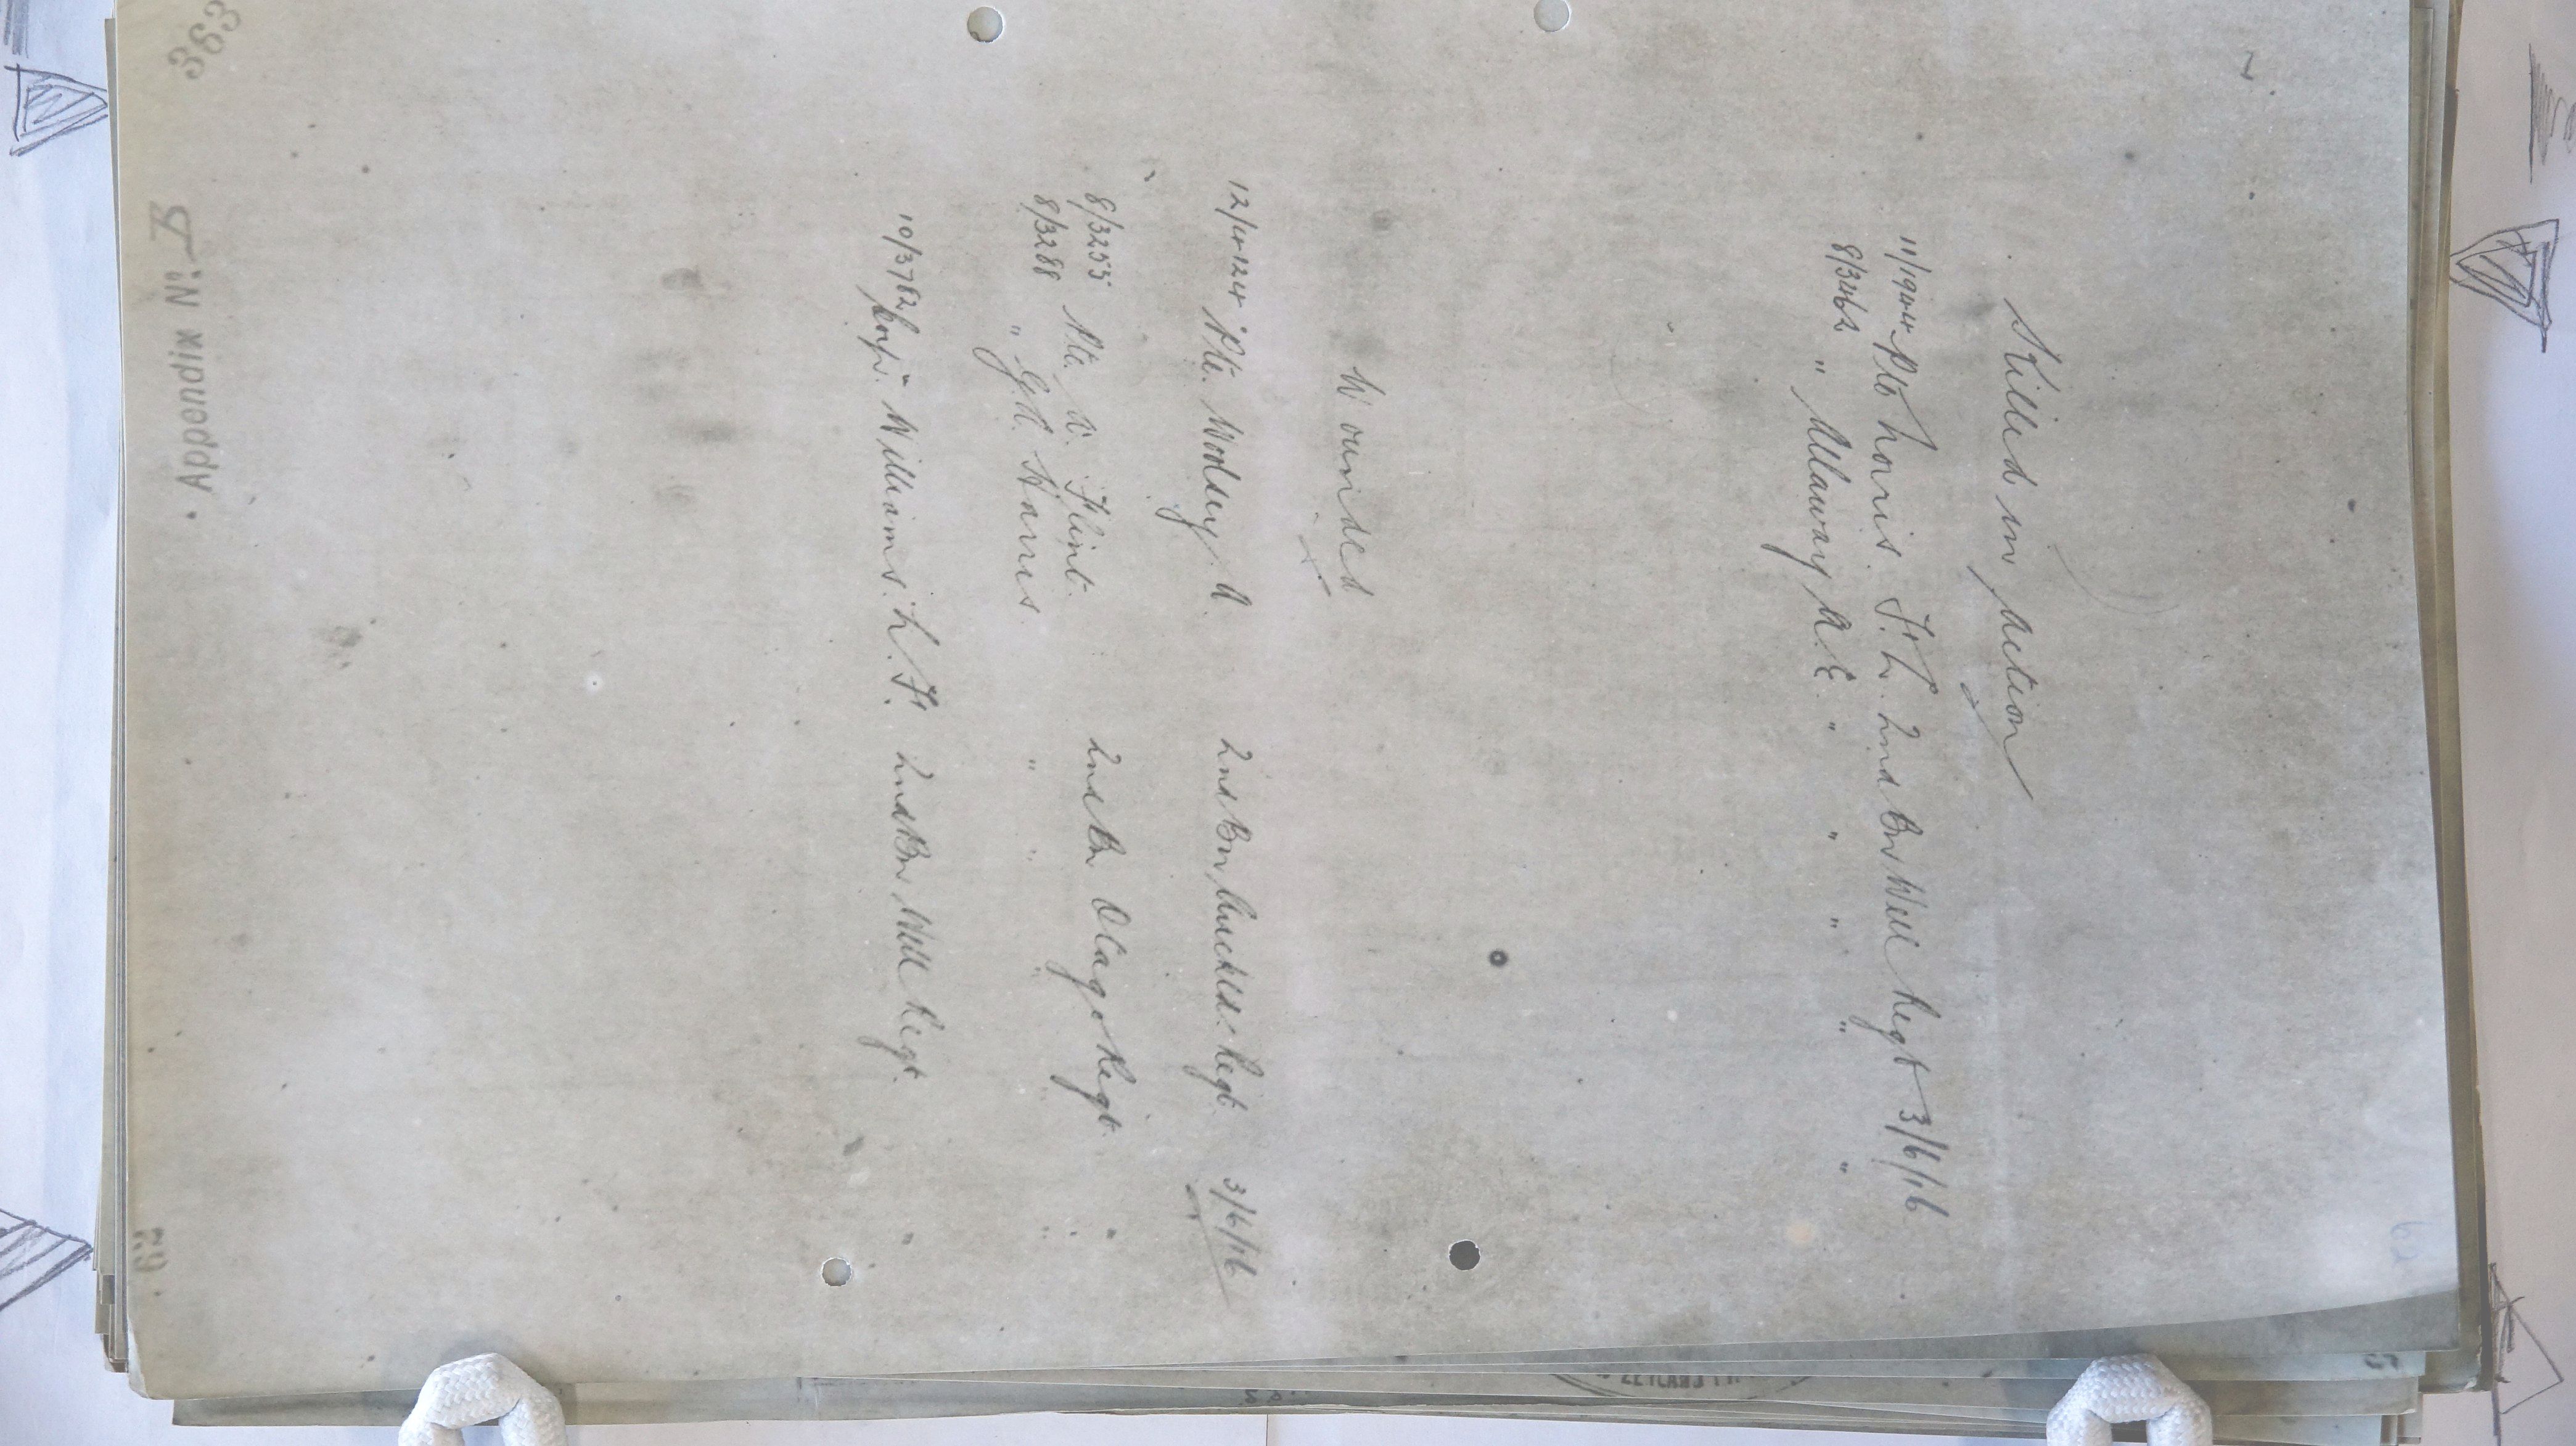 Killed in Action
11/1944 Pte Norris. F. W. 2nd Bn Well Regt 3/6/16
8/3462 " Ullaway A. E. " " " " "
Wounded
12/4124 Pte. Wolsey A. 2nd Bn Auckld. Regt. 3/6/16
8/3255 Pte. W. Flint. 2nd Bn Otago Regt. "
8/3288 " G.H. Harris. " " " "
10/3782 Corp. Williams. L. F. 2nd Bn Well Regt. "
363
Appendix Nº B
69